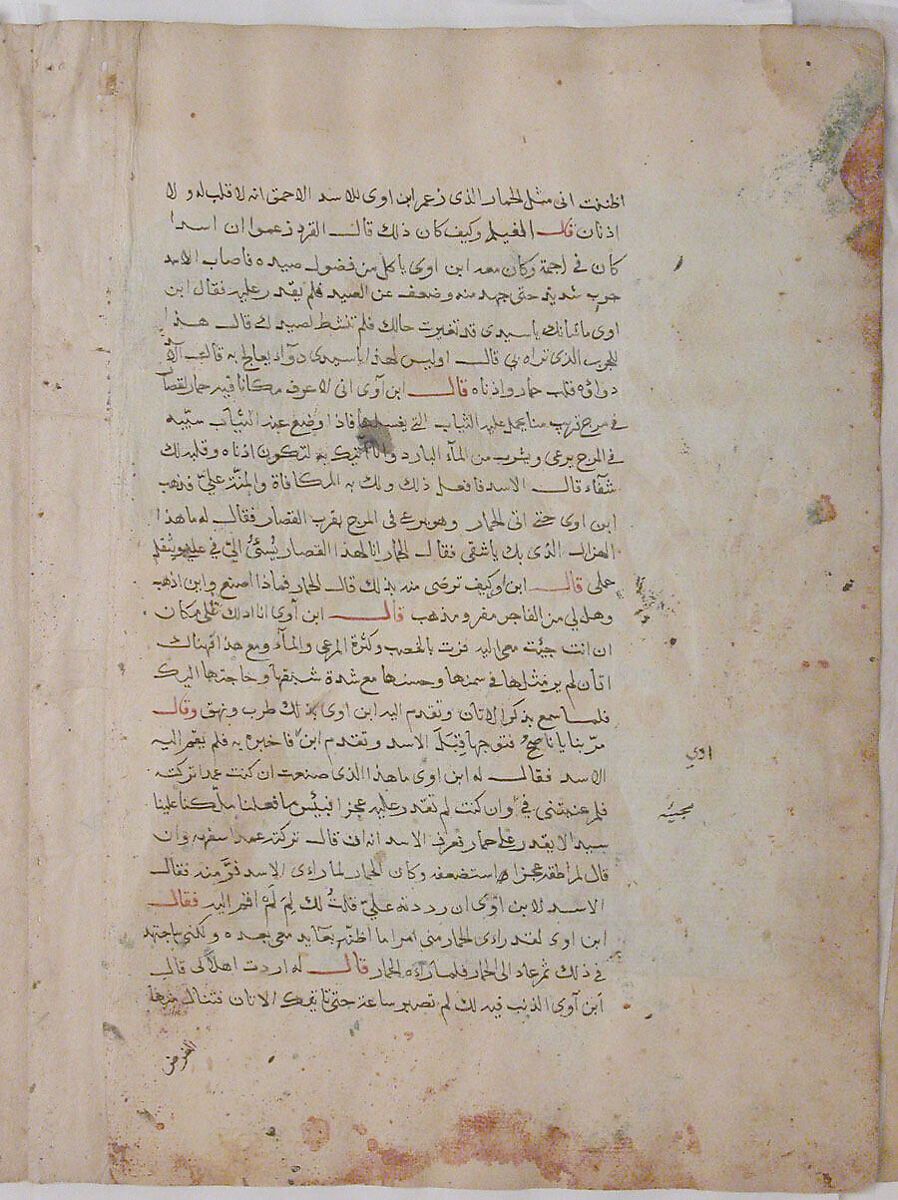 اظننت انى مثل الحمار الذى زعم ابن اوى للاسد الاحمق انه لا قلب له ولا
اذنان قال الغيلم وكيف كان ذلك قال القرد زعموا ان اسدا
كان فى اجمة وكان معه ابن اوى ياكل من فضول صيده فاصاب الاسد
جرب شديد حتى جهد منه وضعف عن الصيد فلم يقدر عليه فقال ابن
اوى ما شانك ياسيدى قد تغيرت حالك فلم تنشط لصيد لك قال هذا
للجرب الذى تراه بى قال اوليس لهذا ياسيدى دوآء يعالج به قال
دواؤه قلب حمار واذناه قال ابن آوى انى لاعرف مكانا فيه حمار لقصار
فى مرج قريب منا يحمل عليه الثياب التى يغسلها فاذا وضع عنه الثياب سيبه
فى المرج يرعى ويشرب من المآء البارد وانا اتيك به لتكون اذناه وقلبه لك
شفاء قال الاسد فافعل ذلك ولك به المكافاة والمنة علىّ فذهب
ابن اوى حتى اتى الحمار وهو يرعى فى المرج بقرب القصار فقال له ما هذا
الهزال الذى بك ياشقى فقال له الحمار انا لهذا القصار يُسئىُ الىّ فى ويثقل
حملى قال ابن او وكيف ترضى منه بذلك قال الحمار فماذا اصنع واين اذهب
وهل لى من الفاجر مفر ومذهب قال ابن آوى انا ادلك على مكان
ان انت جيئت معى اليه فزت بالخصب وكثرة المرعى والمآء ومع هذا فهناك
اتان لم ير مثلها فى سمنها وحسنها مع شدة شبقها وحاجتها اليك
فلما سمع بذكر الاتان وتقدم اليه ابن اوى بذلك طرب ونهق وقال
مرّ بنا يا ناصح فتوجها قِبَل الاسد وتقدم ابن فاخبره به فلم يقم اليه
الاسد فقال له ابن اوى ما هذا الذى صنعت ان كنت عمدا تركته
فلم عنيتنى فى وان كنت لم تقدر عليه عجزا فبئس ما فعلنا ملّكنا علينا
سيد لا يقدر على حمار فعرف الاسد انه ان قال تركته عمدا سفهه وان
قال لم اطقه عجزا استضعفه وكان الحمار لما راءى الاسد فرّ منه فقال
الاسد لابن اوى ان رددته علىّ قلتُ لك لِمَ لَمْ اقم اليه فقال
ابن اوى لقد راءى الحمار منى امرا ما اظنه بعايد معى بعده ولكنى ساجتهد
فى ذلك ثم عاد الى الحمار فلما راءه الحمار قال له اردت اهلاكى قال
ابن آوى الذنب فيه لك لم تصبر ساعة حتى تاتيك الاتان فتنال منها
اوى
مجيئه
الغرض